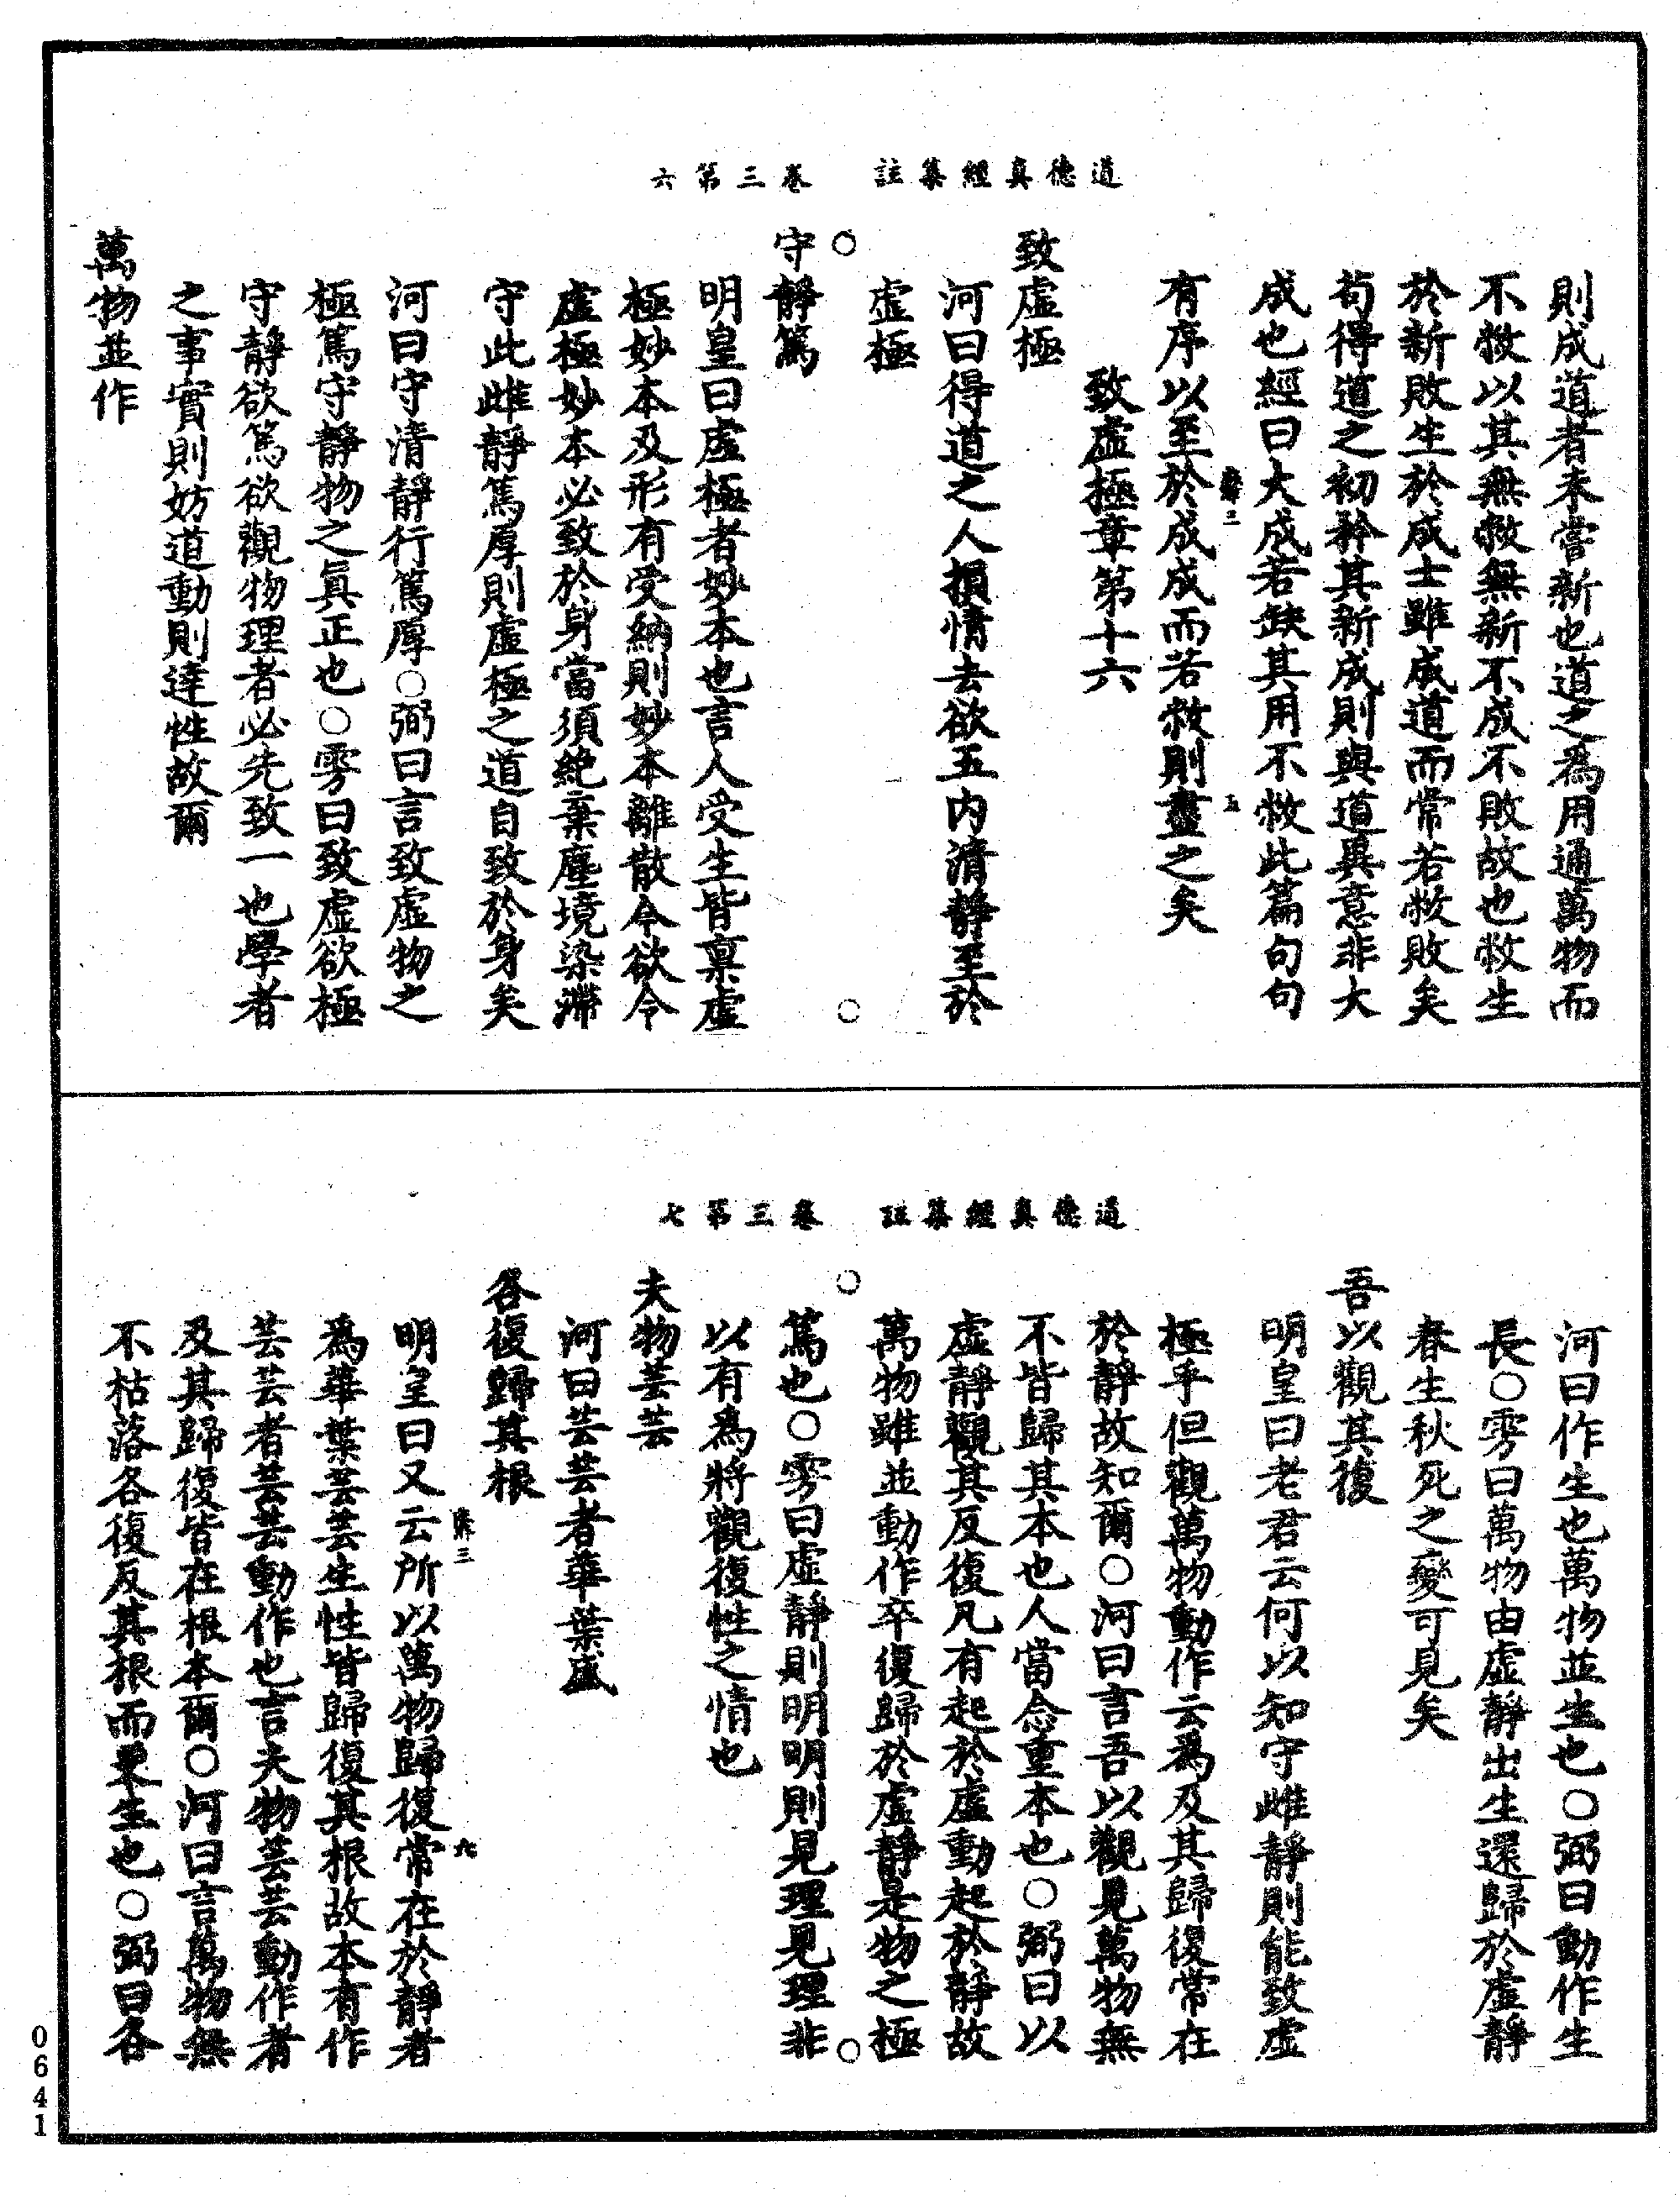 道德真經纂註　卷三第六
則成道者未嘗新也道之爲用通萬物而
不敝以其無敝無新不成不敗故也敝生
於新敗生於成士雖成道而常若敝敗矣
苟得道之初矜其新成則與道異意非大
成也經曰大成若缺其用不敝此篇句句
有序以至於成成而若敝則盡之矣
致虛極章第十六
致虛極
河曰得道之人損情去欲五內清靜至於
虛極
守靜篤
明皇曰虛極者妙本也言人受生皆稟虛
極妙本及形有受納則妙本離散今欲令
虛極妙本必致於身當須絶棄塵境染滯
守此雌靜篤厚則虛極之道自致於身矣
河曰守清靜行篤厚○弼曰言致虛物之
極篤守靜物之眞正也○雱曰致虛欲極
守靜欲篤欲觀物理者必先致一也學者
之事實則妨道動則違性故爾
萬物並作
道德真經纂註　卷三第七
河曰作生也萬物並生也○弼曰動作生
長○雱曰萬物由虛靜出生還歸於虛靜
春生秋死之變可見矣
吾以觀其復
明皇曰老君云何以知守雌靜則能致虛
極乎但觀萬物動作云爲及其歸復常在
於靜故知爾○河曰言吾以觀見萬物無
不皆歸其本也人當念重本也○弼曰以
虛靜觀其反復凡有起於虛動起於靜故
萬物雖並動作卒復歸於虛靜是物之極
篤也○雱曰虛靜則明明則見理見理非
以有爲將觀復性之情也
夫物芸芸
河曰芸芸者華葉盛
各復歸其根
明皇曰又云所以萬物歸復常在於靜者
爲華葉芸芸生性皆歸復其根故本有作
芸芸者芸芸動作也言夫物芸芸動作者
及其歸復皆在根本爾○河曰言萬物無
不枯落各復反其根而更生也○弼曰各
0641